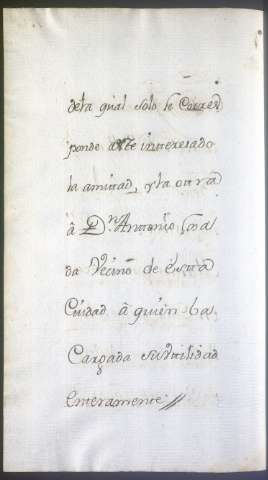 dela qual solo le Corres
ponde a este interesado
la amitad, y la otra
â Dn. Antonio
da Vecino de ésta
Ciudad â quien ba
Cargada su Vtilidad
enteramente //